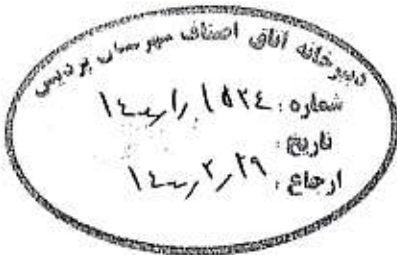 دبیرخانه اتاق اصناف شهرستان پردیس
شماره: ۱۴۰۰/۱/۱۵۲۴
تاریخ:
ارجاع: ۱۴۰۰/۲/۲۹